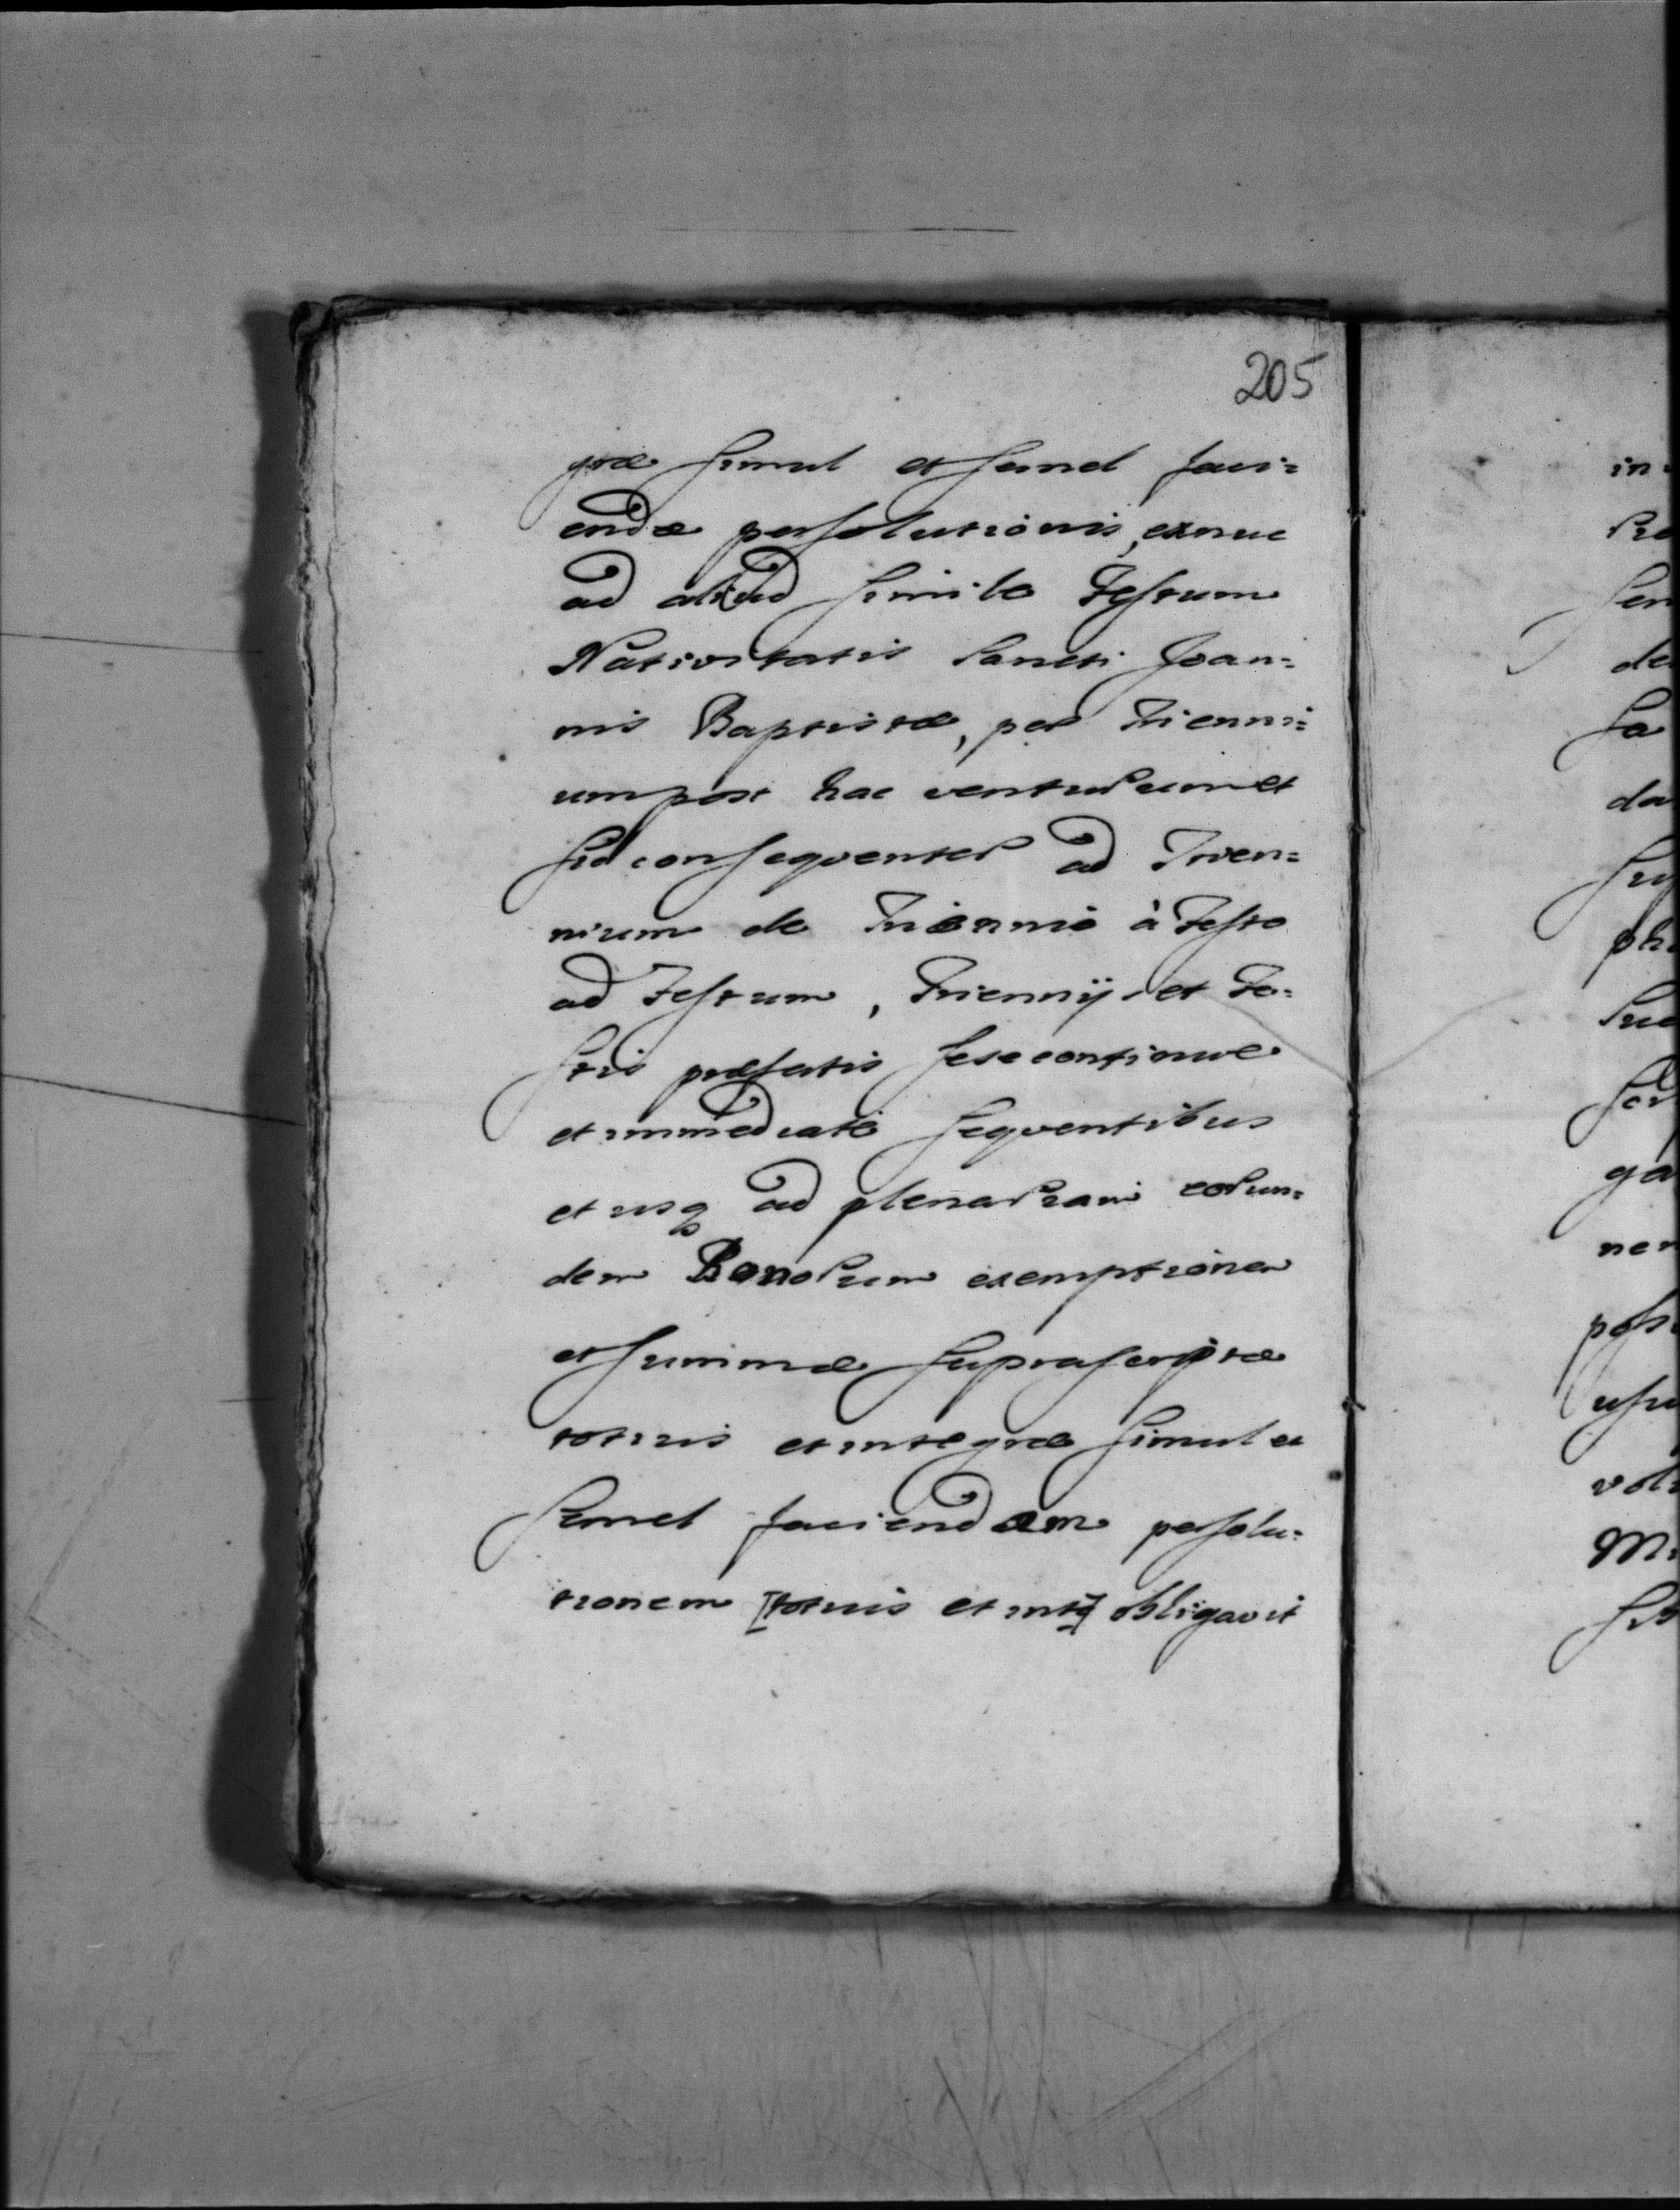 205
græ simul et semel faci=
endæ persolutionis, exnuc
ad aliud simile Festum
Nativitatis Sancti Joan=
nis Baptistæ, per Trienni=
um post hac venturum et
sic consequenter ad Trien=
nium de Triennio à Festo
ad Festum, Triennÿs et Fe=
stis præfatis sese continue
et immediatè sequentibus
et usq ad plenariam eorun=
dem Bonorum exemptionem
et summæ suprascriptæ
totius et integræ simul et
semel faciendam persolu=
tionem [totius et integ] obligavit
in
de
da
ga
ner
M